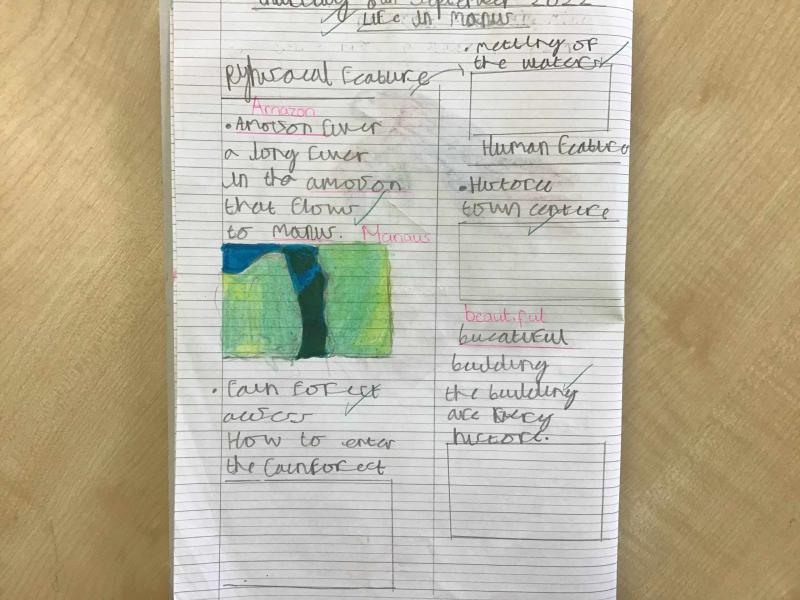 LIFE in Manus
Pyhsacal Feature
Amazon
• Amoison River
a long river
in the amosion
that flows
to Manus. Manaus
• Rain forest
access
How to enter
the rainforest
• meeting of
the waters
Human Feature
• Historic
town centre
beautiful
bueatiful
building
the building
are very
historic.